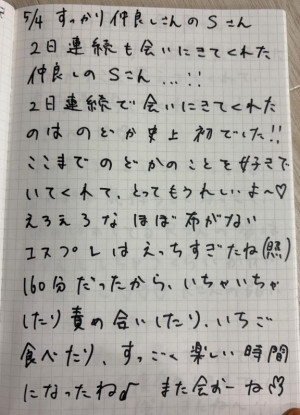 5/4 すっかり仲良しさんのSさん
2日連続も会いにきてくれた
仲良しの Sさん...!!
2日連続で会いにきてくれた
のは のどか史上 初でした!!
ここまでのどかのことを好きで
いてくれて、とってもうれしいよ〜♡
えろえろな ほぼ布がない
コスプレは えっちすぎたね(照)
160分だったから、いちゃいちゃ
したり責め合いしたり、いちご
食べたり、すっごく楽しい時間
になったね♪ また会おーね♡